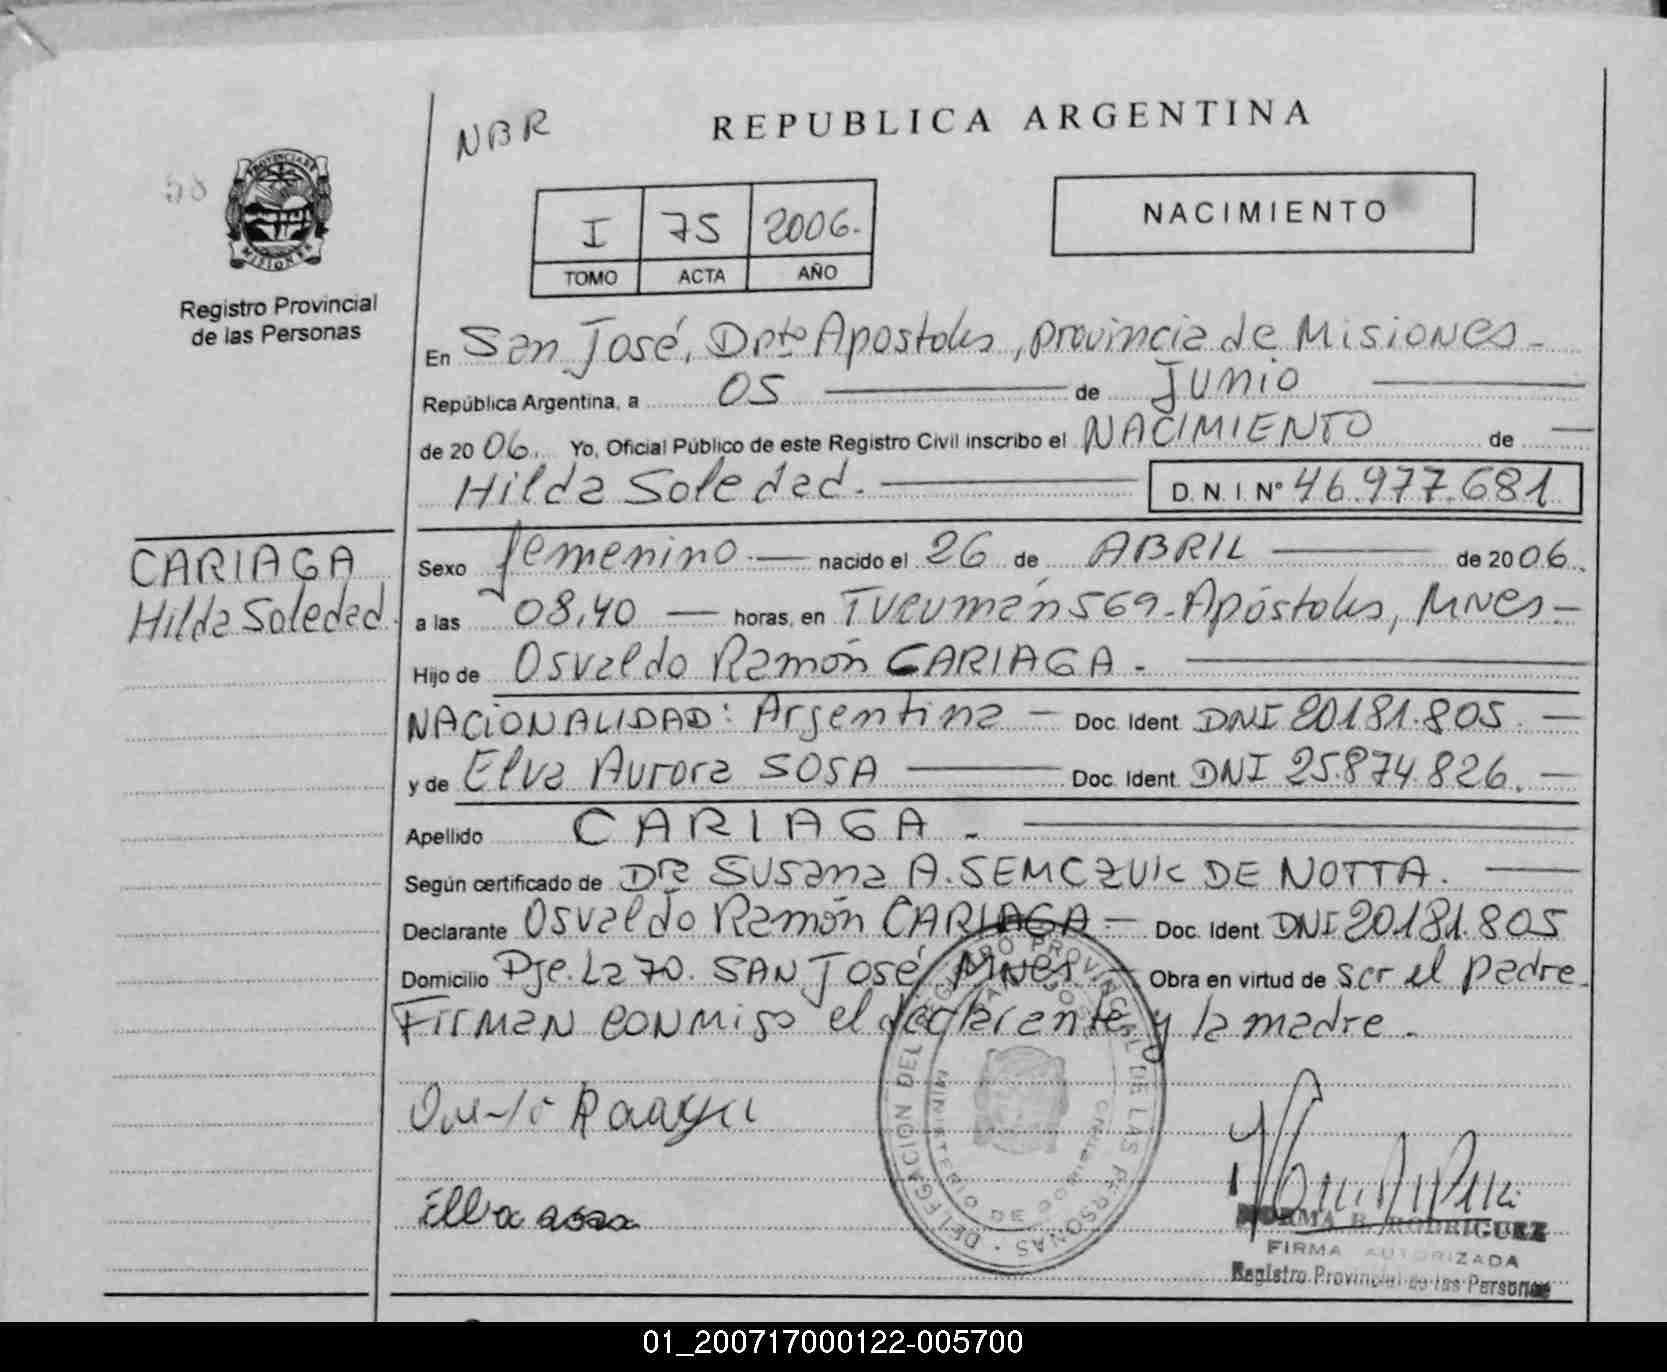 NBR
REPUBLICA ARGENTINA
58
PROVINCIA DE
MISIONES
I 75 2006.
TOMO ACTA AÑO
NACIMIENTO
Registro Provincial
de las Personas
En San José, Dpto Apostoles, provincia de Misiones
República Argentina, a 05 de Junio
de 2006. Yo, Oficial Público de este Registro Civil inscribo el NACIMIENTO de
Hilda Soledad. D.N.I. Nº 46.977.681
CARIAGA
Hilda Soledad.
Sexo femenino nacido el 26 de ABRIL de 2006.
a las 08,40 horas, en Tucumán 569-Apóstoles, Mnes-
Hijo de Osvaldo Ramón CARIAGA.
NACIONALIDAD: Argentina Doc. Ident. DNI 20181.805.
y de Elva Aurora SOSA Doc. Ident. DNI 25.874.826.
Apellido CARIAGA.
Según certificado de Dra Susana A. SEMCZUK DE NOTTA.
Declarante Osvaldo Ramón CARIAGA Doc. Ident. DNI 20181.805
Domicilio Pje. La 70. SAN José Mnes. Obra en virtud de ser el padre.
Firman conmigo el declarante y la madre.
DELEGACION DEL REGISTRO PROVINCIAL DE LAS PERSONAS
MINISTERIO DE GOBIERNO
NORMA B. RODRIGUEZ
FIRMA AUTORIZADA
Registro Provincial de las Personas
01_200717000122-005700